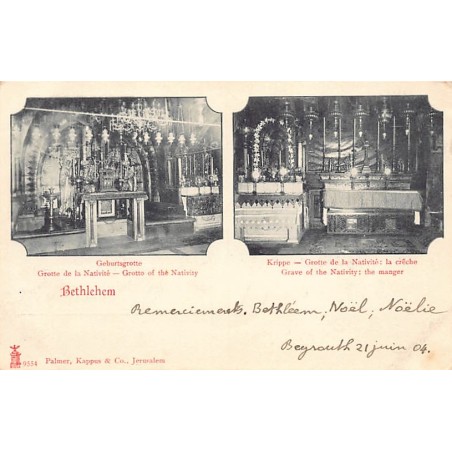 Geburtsgrotte
Grotte de la Nativité — Grotto of the Nativity
Krippe — Grotte de la Nativité: la crêche
Grave of the Nativity: the manger
Bethlehem
Remerciements. Bethléem, Noël, Noëlie
Beyrouth 21 juin 04.
9354 Palmer, Kappus & Co., Jerusalem